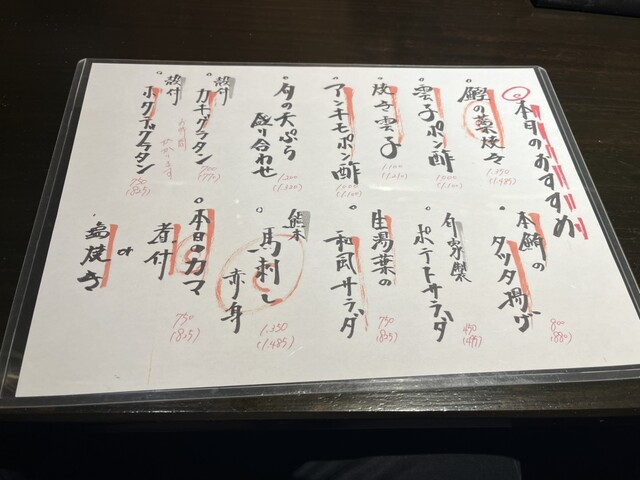 本日のおすすめ
鰹の藁焼き
1.350
(1.485)
雲子ポン酢
1.000
(1.100)
炊き雲子
1.100
(1.210)
アンキモポン酢
1.000
(1.100)
旬の天ぷら
盛り合わせ
1.200
(1.320)
殻付
カニグラタン
700
(770)
お時間
かかります
殻付
ホタテグラタン
750
(825)
本鮪の
タツタ揚げ
800
(880)
自家製
ポテトサラダ
450
(495)
生湯葉の
和風サラダ
750
(825)
熊本
馬刺し
赤身
1.350
(1.485)
本日のカマ
煮付
or
塩焼き
750
(825)